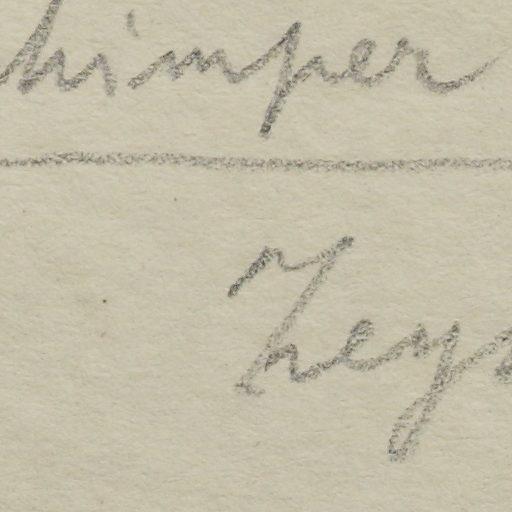 himper
Zeys